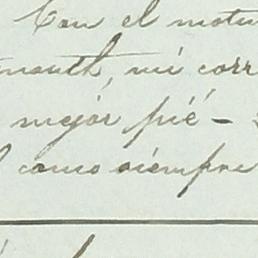 Con el motu
mouth, mi corr
mejór pié —
como siempre